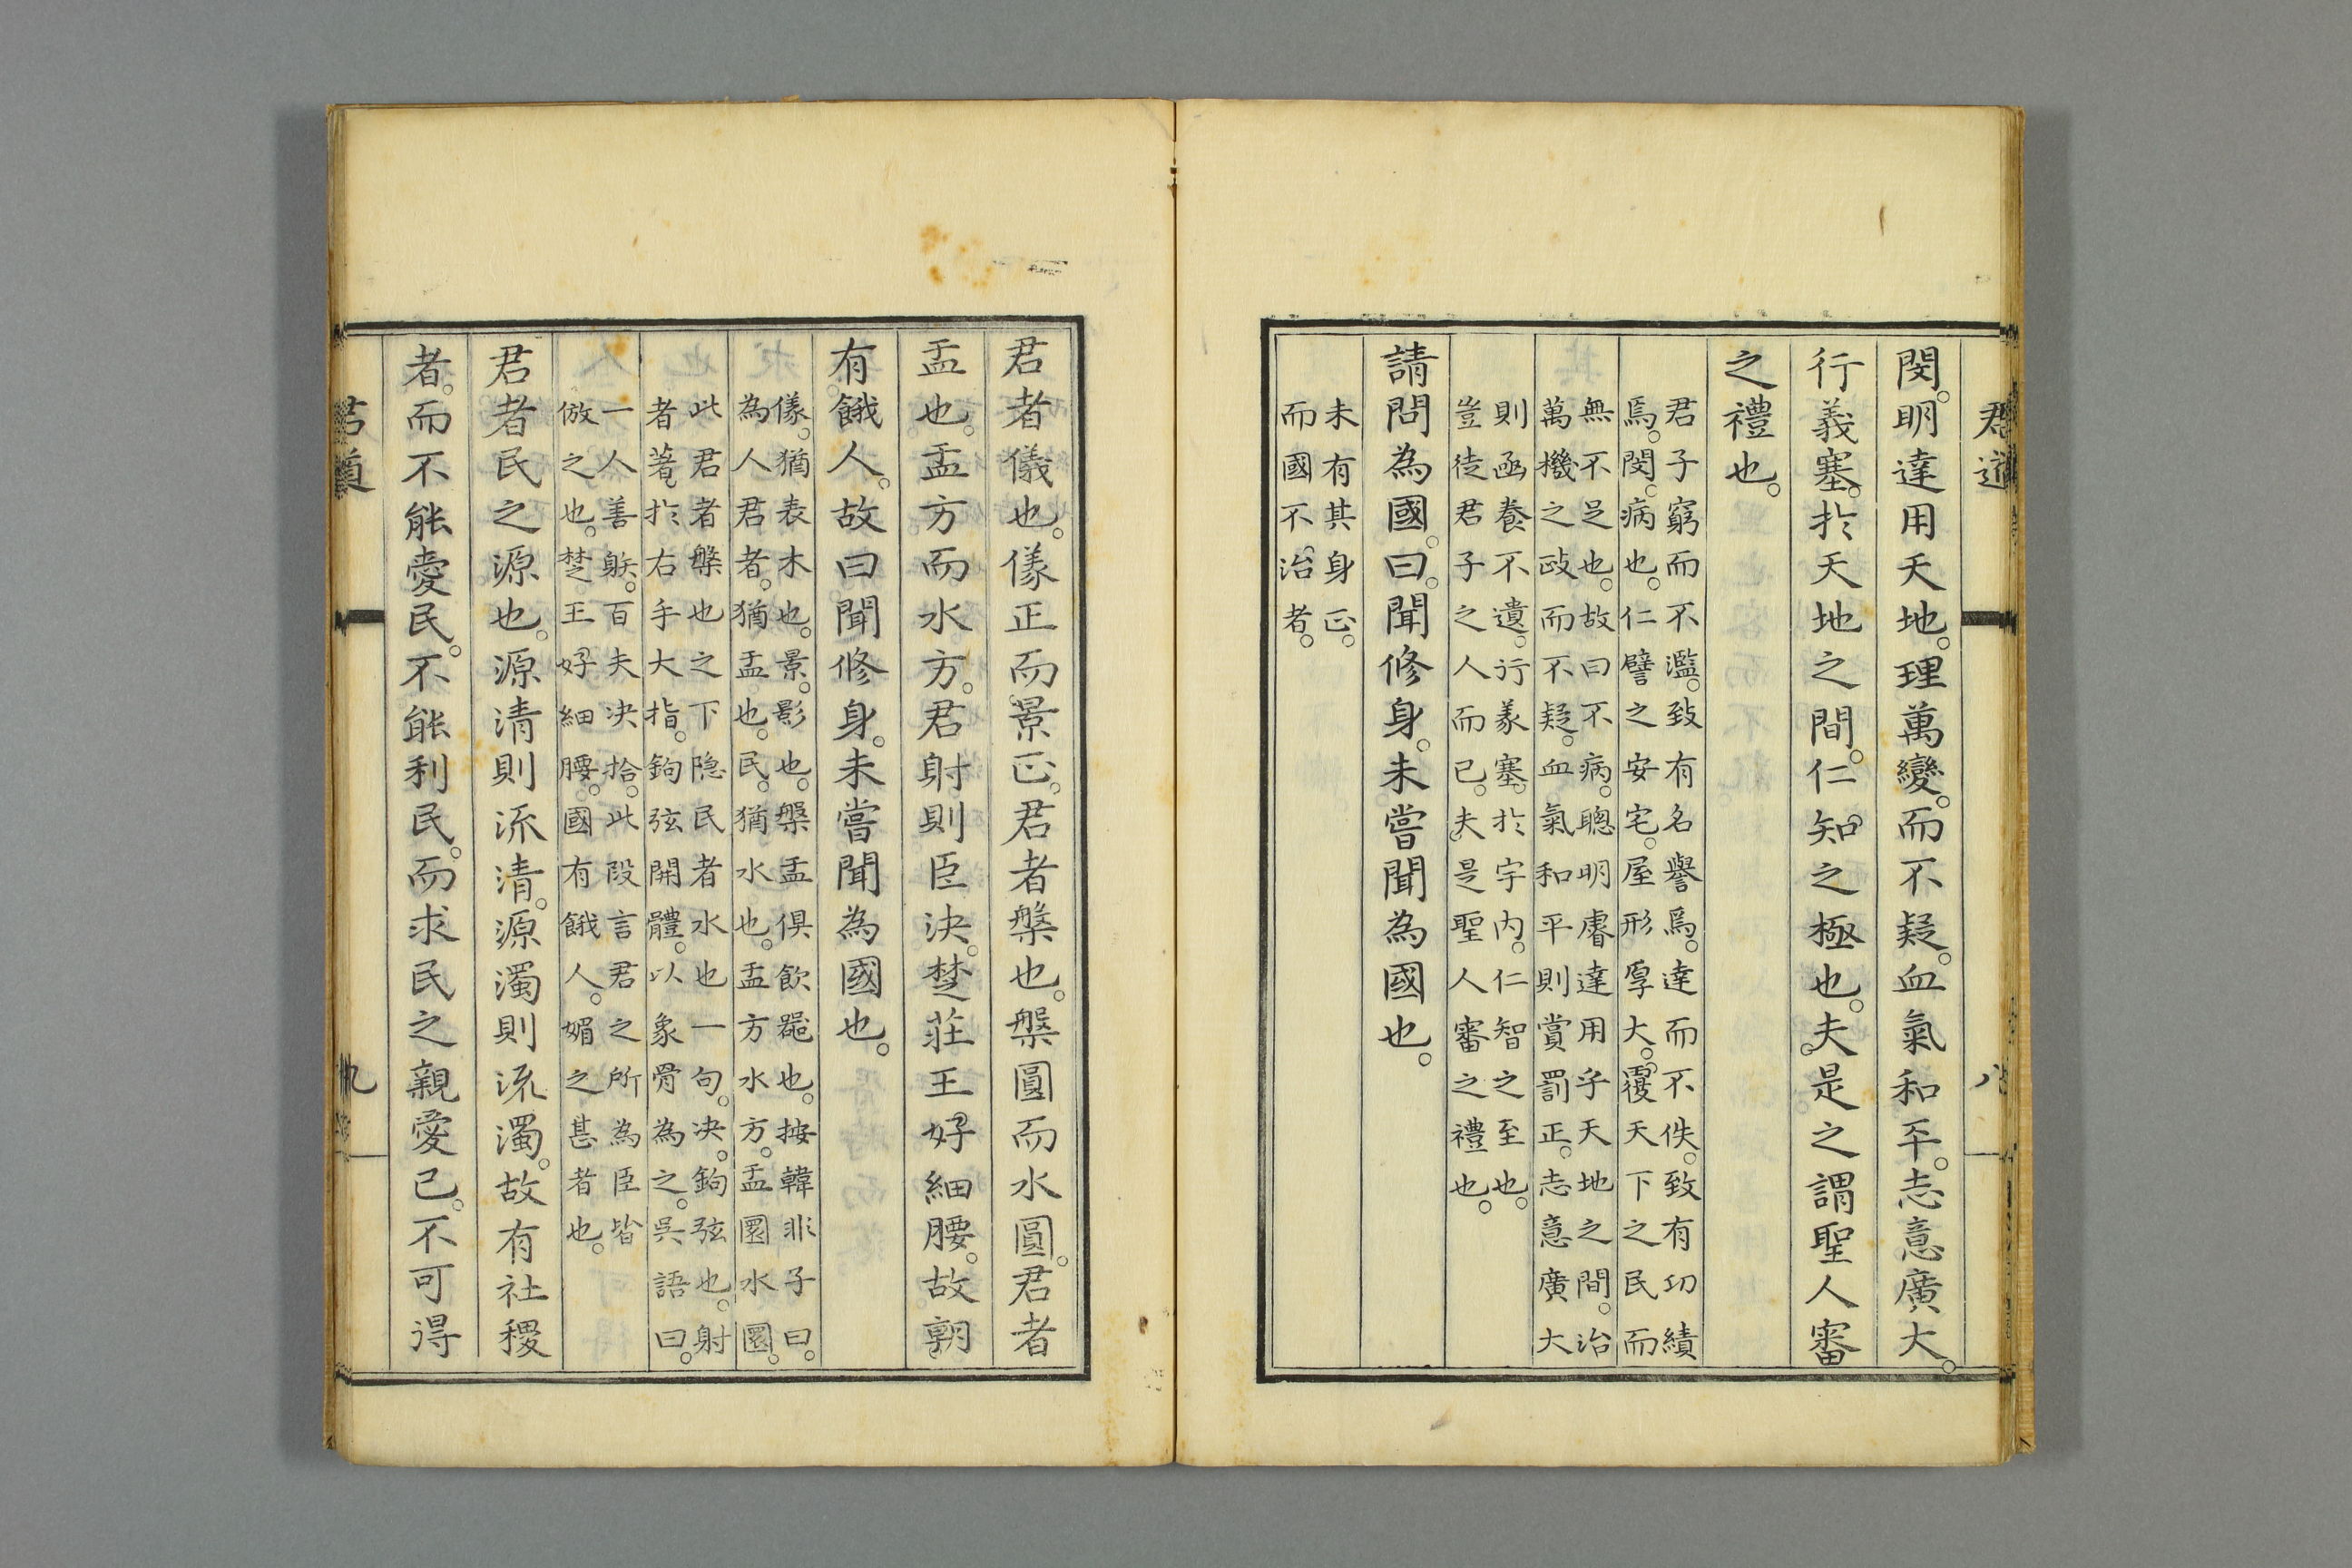 君道 八
閔。明達用天地。理萬變。而不疑。血氣和平。志意廣大。
行義塞。於天地之間。仁知之極也。夫是之謂聖人審
之禮也。
君子窮而不濫。致有名譽焉。達而不佚。致有功績
焉。閔。病也。仁譬之安宅。屋形厚大。覆天下之民而
無不足也。故曰不病。聰明睿達用乎天地之間。治
萬機之政而不疑。血氣和平則賞罰正。志意廣大
則函養不遺。行義塞。於宇内。仁智之至也。
豈徒君子之人而已。夫是聖人審之禮也。
請問為國。曰。聞修身。未嘗聞為國也。
未有其身正。
而國不治者。
君者儀也。儀正而景正。君者槃也。槃圓而水圓。君者
盂也。盂方而水方。君射則臣決。楚莊王好細腰。故朝
有餓人。故曰聞修身。未嘗聞為國也。
儀。猶表木也。景。影也。槃盂俱飲器也。按韓非子曰。
為人君者。猶盂也。民。猶水也。盂方水方。盂圜水圜。
此君者槃也之下隐民者水也一句。決。鉤弦也。射
者著於右手大指。鉤弦開體。以象骨為之。呉語曰。
一人善䠶。百夫決拾。此段言君之所為臣皆
倣之也。楚王好細腰。國有餓人。媚之甚者也。
君者民之源也。源清則流清。源濁則流濁。故有社稷
者。而不能愛民。不能利民。而求民之親愛己。不可得
君道 九